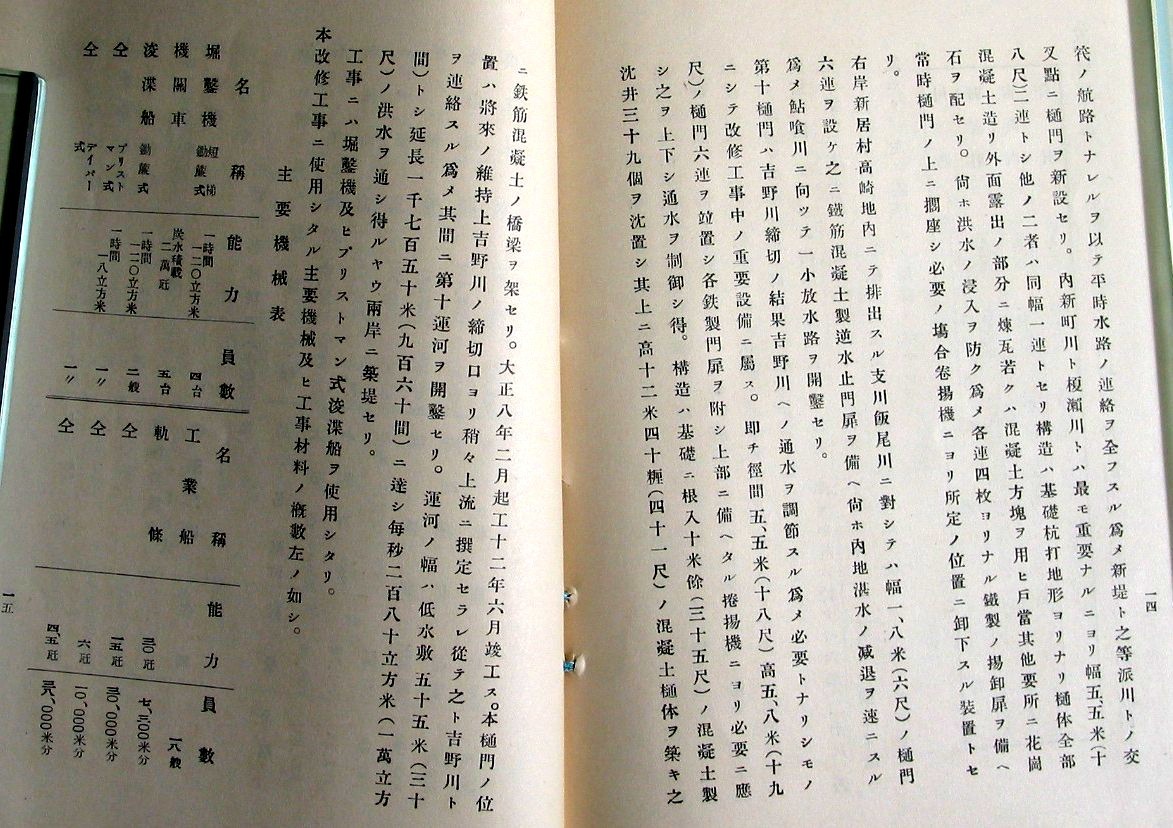 筏ノ航路トナレルヲ以テ平時水路ノ連絡ヲ全フスル爲メ新堤ト之等派川トノ交
叉點ニ樋門ヲ新設セリ。內新町川ト榎瀨川トハ最モ重要ナルニヨリ幅五、五米(十
八尺)二連トシ他ノ二者ハ同幅一連トセリ構造ハ基礎杭打地形ヨリナリ樋体全部
混凝土造リ外面露出ノ部分ニ煉瓦若クハ混凝土方塊ヲ用ヒ戶當其他要所ニ花崗
石ヲ配セリ。尙ホ洪水ノ浸入ヲ防ク爲メ各連四枚ヨリナル鐵製ノ揚卸扉ヲ備ヘ
常時樋門ノ上ニ擱座シ必要ノ塲合卷揚機ニヨリ所定ノ位置ニ卸下スル裝置トセ
リ。
右岸新居村高崎地內ニテ排出スル支川飯尾川ニ對シテハ幅一、八米(六尺)ノ樋門
六連ヲ設ケ之ニ鐵筋混凝土製逆水止門扉ヲ備ヘ尙ホ內地湛水ノ减退ヲ速ニスル
爲メ鮎喰川ニ向ツテ一小放水路ヲ開鑿セリ。
第十樋門ハ吉野川締切ノ結果吉野川ヘノ通水ヲ調節スル爲メ必要トナリシモノ
ニシテ改修工事中ノ重要設備ニ屬ス。卽チ徑間五、五米(十八尺)高五、八米(十九
尺)ノ樋門六連ヲ竝置シ各鉄製門扉ヲ附シ上部ニ備ヘタル捲揚機ニヨリ必要ニ應
シ之ヲ上下シ通水ヲ制御シ得。構造ハ基礎ニ根入十米餘(三十五尺)ノ混凝土製
沈井三十九個ヲ沈置シ其上ニ高十二米四十糎(四十一尺)ノ混凝土樋体ヲ築キ之
一四
ニ鉄筋混凝土ノ橋梁ヲ架セリ。大正八年二月起工十二年六月竣工ス。本樋門ノ位
置ハ將來ノ維持上吉野川ノ締切口ヨリ稍々上流ニ撰定セラレ從テ之ト吉野川ト
ヲ連絡スル爲メ其間ニ第十運河ヲ開鑿セリ。運河ノ幅ハ低水敷五十五米(三十
間)トシ延長一千七百五十米(九百六十間)ニ達シ每秒二百八十立方米(一萬立方
尺)ノ洪水ヲ通シ得ルヤウ兩岸ニ築堤セリ。
工事ニハ堀鑿機及ヒプリストマン式浚渫船ヲ使用シタリ。
本改修工事ニ使用シタル主要機械及ヒ工事材料ノ槪數左ノ如シ。
主要機械表
名稱 能力 員數
堀鑿機 短梯鋤簏式 一時間一二〇立方米 四台
機關車 炭水積載二萬瓩 五台
浚渫船 鋤簏式 一時間一二〇立方米 二艘
仝 プリストマン式 一時間一八立方米 一〃
仝 デイパー式 一〃
名稱 能力 員數
工業船 一八艘
軌條 三〇瓩 七、三〇〇米分
仝 一五瓩 三〇、〇〇〇米分
仝 六瓩 一〇、〇〇〇米分
仝 四、五瓩 三六、〇〇〇米分
一五